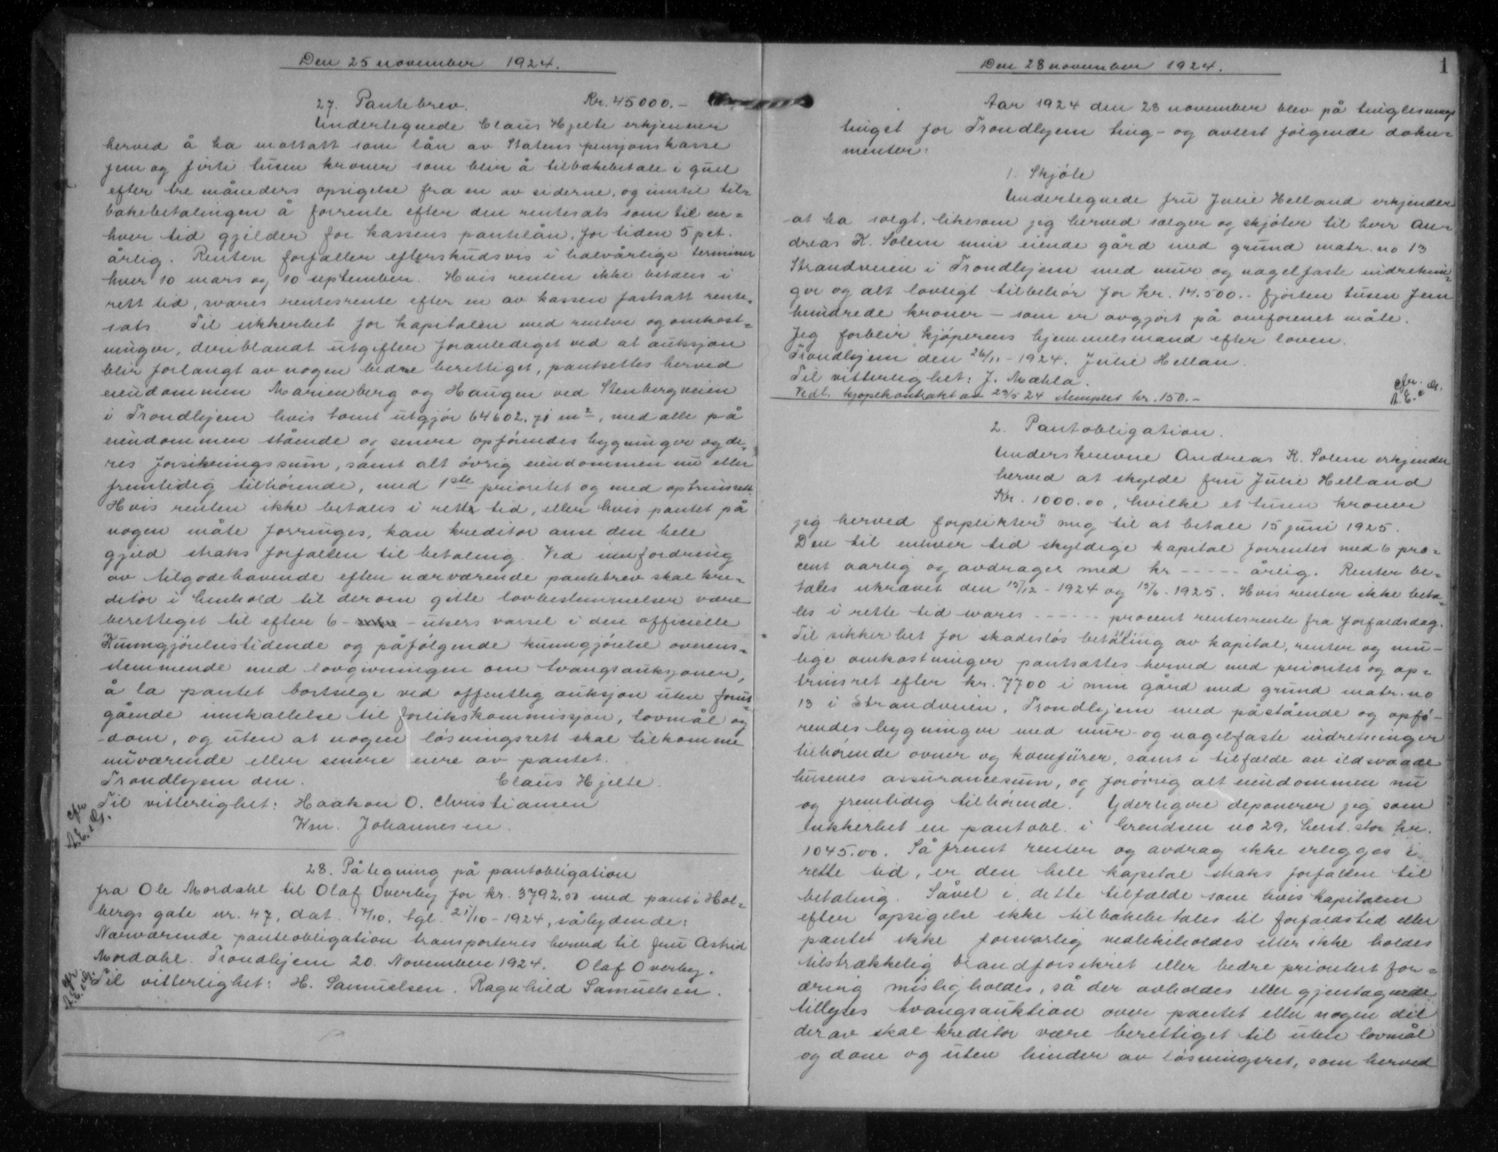 Den 25 november 1924.
27. Pantebrev. Kr. 45000.-
Undertegnede Claus Hjelte erkjenner
herved å ha mottatt som lån av Statens pensjonskasse
fem og førti tusen kroner som blir å tilbakebetale i gull
efter tre måneders opsigelse fra en av siderne, og inntil til-
bakebetalingen å forrente efter den rentesats som til en-
hver tid gjelder for kassens pantelån, for tiden 5 pct.
årlig. Renten forfaller efterskudsvis i halvårlige terminer
hver 10 mars og 10 september. Hvis renten ikke betales i
rett tid, svares rentesrente efter en av kassen fastsatt rente-
sats. Til sikkerhet for kapitalen med renter og omkost-
ninger, deriblandt utgifter foranlediget ved at auksjon
blir forlangt av nogen bedre berettiget, pantsettes herved
eiendommen Marienberg og Haugen ved Stenbergveien
i Trondhjem hvis tomt utgjør 64602.71 m², med alle på
eiendommen stående og senere opførendes bygninger og de-
res forsikringssum, samt alt øvrig eiendommen nu eller
fremtidig tilhørende, med 1ste prioritet og med optrinsrett.
Hvis renten ikke betales i rette tid, eller hvis pantet på
nogen måte forringes, kan kreditor anse den hele
gjeld straks forfallen til betaling. Ved innfordring
av tilgodehavende efter nærværende pantebrev skal kre-
ditor i henhold til derom gitte lovbestemmelser være
berettiget til efter 6- ukers varsel i den officielle
Kunngjørelsestidende og påfølgende kunngjørelse overens-
stemmende med lovgivningen om tvangsauksjoner,
å la pantet bortselge ved offentlig auksjon uten forut-
gående innkallelse til forlikskommissjon, lovmål og
dom, og uten at nogen løsningsrett skal tilkomme
nuværende eller senere eiere av pantet.
Trondhjem den. Claus Hjelte.
Til vitterlighet: Haakon O. Christiansen
Wm. Johannesen
28. Påtegning på pantobligation
fra Ole Mordahl til Olaf Overby for kr. 3792,50 med pant i Hol-
bergs gate nr. 47, dat. 17/10, tgl. 21/10-1924, sålydende:
Nærværende panteobligation transporteres herved til fru Astrid
Mordahl. Trondhjem 20. November 1924. Olaf Overby.
Til vitterlighet: H. Samuelsen. Ragnhild Samuelsen.
Den 28 november 1924.
1
Aar 1924 den 28 november blev på tinglesnings
tinget for Trondhjem ting- og avlest følgende doku-
menter:
1. Skjøte
Undertegnede fru Julie Helland erkjender
at ha solgt, likesom jeg herved sælger og skjøter til herr An-
dreas K. Solem min eiende gård med grund matr. no 13
Strandveien i Trondhjem med mur og nagelfaste indretnin-
ger og alt lovligt tilbehør for kr. 14.500.- fjorten tusen fem
hundrede kroner - som er avgjort på omforenet måte.
Jeg forblir kjøperens hjemmelsmand efter loven.
Trondhjem den 26/11-1924. Julie Hellan.
Til vitterlighet: J. Mæhla.
Vedl. kjøpekontrakt av 23/5 24 stemplet kr. 150.-
2. Pantobligation.
Underskrevne Andreas K. Solem erkjender
herved at skylde fru Julie Helland
Kr. 1000.00, hvilke et tusen kroner
jeg herved forplikter mig til at betale 15 juni 1925.
Den til enhver tid skyldige kapital forrentes med 6 pro-
cent aarlig og avdrages med kr - - - - - årlig. Renter be-
tales ukrævet den 15/12-1924 og 15/6-1925. Hvis renter ikke beta-
les i rette tid svares - - - - - procent rentesrente fra forfaldsdag.
Til sikkerhet for skadesløs betaling av kapital, renter og mu-
lige omkostninger pantsættes herved med prioritet og op-
trinsret efter kr. 7700 i min gård med grund matr. no
13 i Strandveien, Trondhjem med påstående og opfø-
rendes bygninger med mur- og nagelfaste indretninger
tilhørende ovner og komfürer, samt i tilfælde av ildsvaade
husenes assurancesum, og forøvrig alt eiendommen nu
og fremtidig tilhørende. Yderligere deponerer jeg som
sikkerhet en pantobl. i Grendsen no 29, stor kr.
1045.00. Så fremt renter og avdrag ikke erlegges i
rette tid, er den hele kapital straks forfalden til
betaling. Såvel i dette tilfælde som hvis kapitalen
efter opsigelse ikke tilbakebetales til forfaldstid eller
pantet ikke forsvarlig vedlikeholdes eller ikke holdes
tilstrækkelig brandforsikret eller bedre prioritert for-
dring misligholdes, så der avholdes eller gjentagende
tillyses tvangsauktion over pantet eller nogen del
derav skal kreditor være berettiget til uten lovmål
og dom og uten hinder av løsningsret, som herved